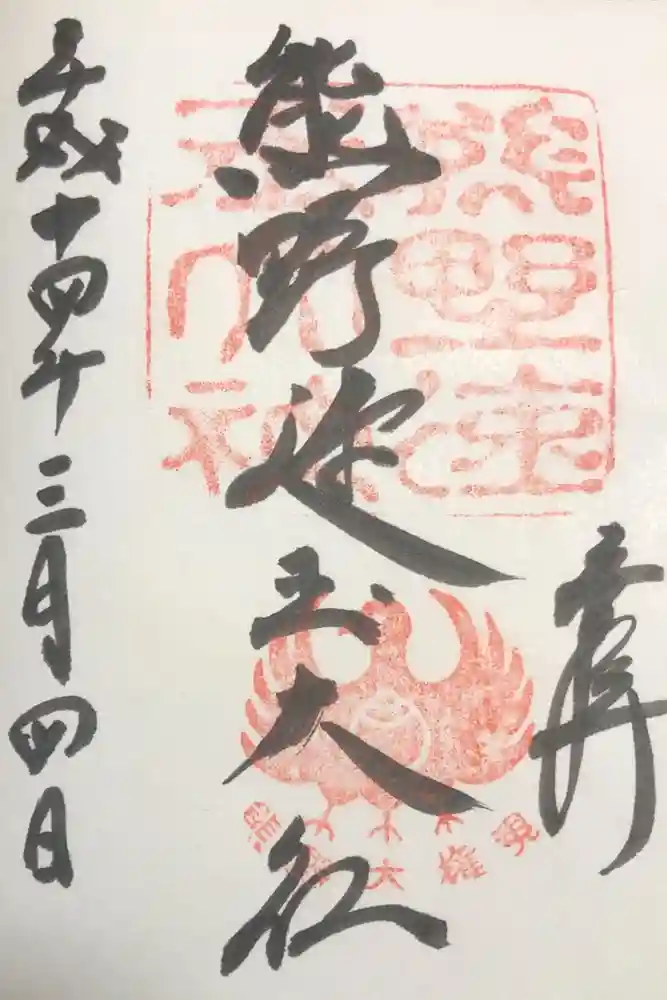 奉拝
熊野速玉大社
平成十四年三月四日
熊野速
玉大社
熊野大権現